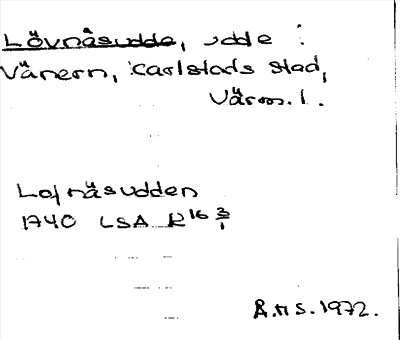 Lövnäsudde, udde i
Vänern, Karlstads stad,
Värml.
Lofnäsudden
1740 LSA K16 3/1
R.n S. 1972.